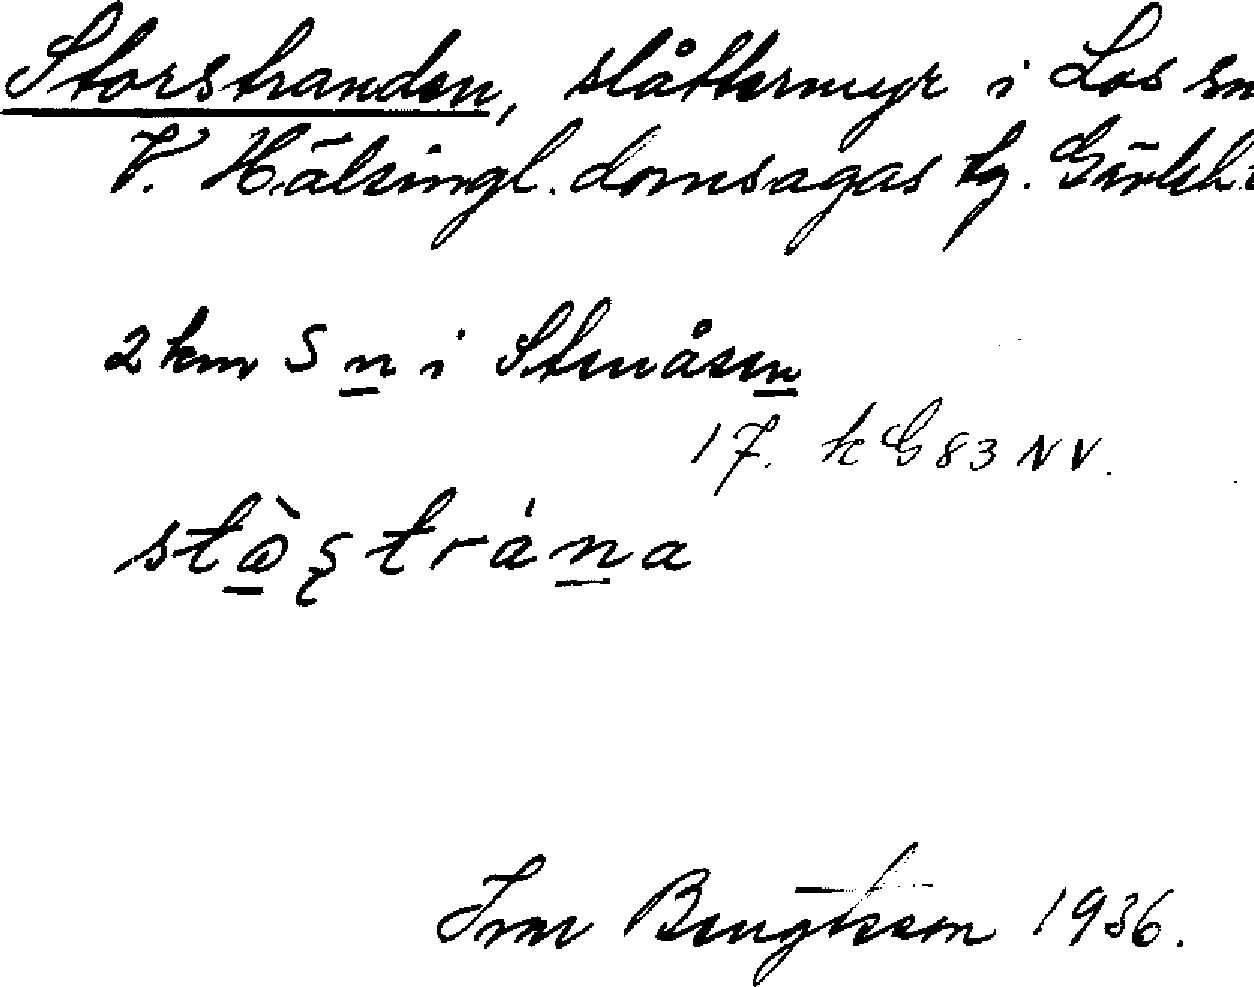 Storstranden, slåttermyr i Los sn
V. Hälsingl. domsagas tg. Gävleb.
2 km S n i Stenåsen
17. k G 83 NV.
stɷ̀ʂtrána
Ivar Bengtsson 1936.